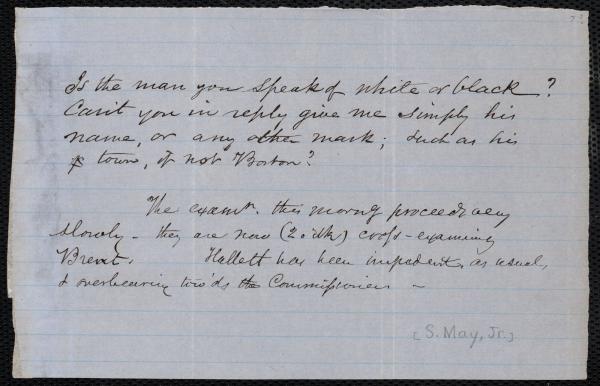 Is the man you speak of white or black?
Can't you in reply give me simply his
name, or any other mark; such as his
town, if not Boston?
The examn. this morng proceeds very
slowly - they are now (2 o'clk) cross-examining
Brent. Hallett has been impudent, as usual,
& overbearing tow'ds the Commissioner -
[S. May, Jr.]